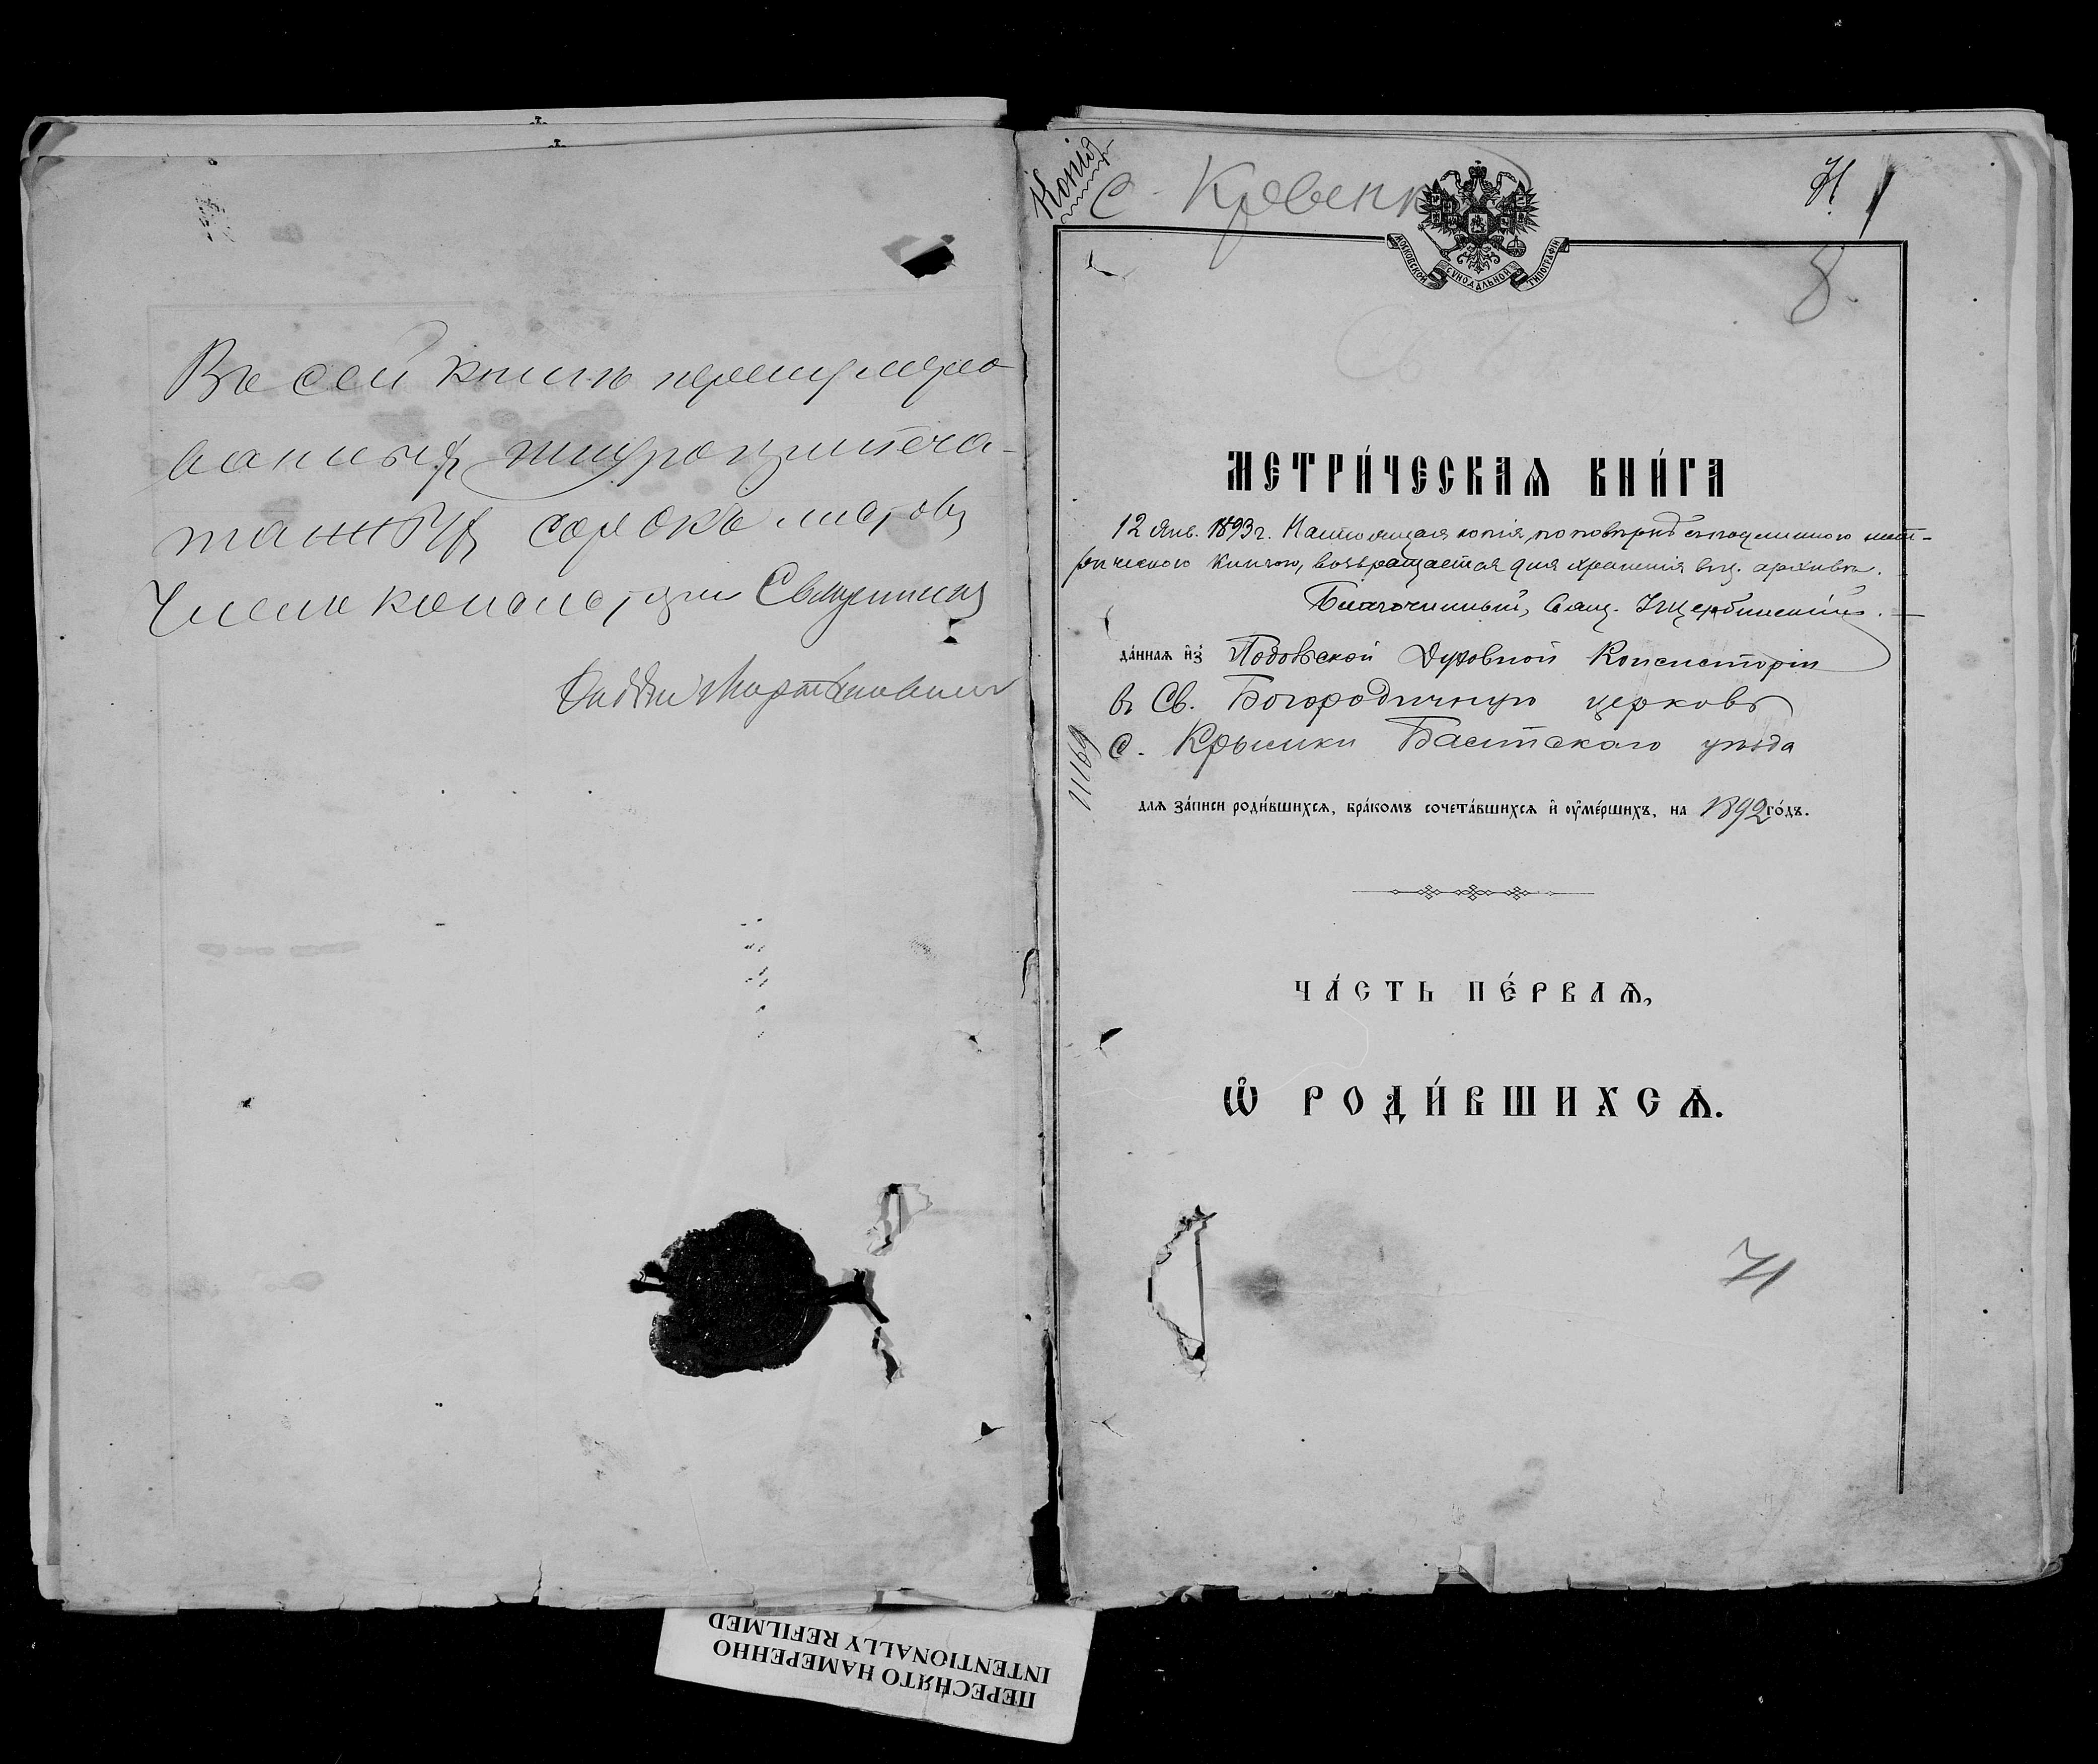 Въ сей книгѣ перенумеро
ванныхъ шнуропечата-
танныхъ сорокъ листовъ
Членъ консисторіи Священникъ
Копія
С. Кривенк
МОСКОВСКОЙ СѴНОДАЛЬНОЙ ТИПОГРАФІИ
8.
МЕТРИ́ЧЕСКАѦ КНИ́ГА
12 Янв. 1893 г. Настоящая копія, по повѣркѣ съ подлинною мет-
рическою книгою, возвращается для храненія въ ц. архивѣ.
Благочинный, Свящ. Щербинскій.
да́ннаѧ и҆з̾ Подольской Духовной Консисторіи
въ Св. Богородичную церковь
с. Крыжки Балтскаго уѣзда
11169
длѧ за́писи роди́вшихсѧ, бра́комъ сочета́вшихсѧ и҆ ᲂу҆ме́ршихъ, на 1892 го́дъ.
ЧА́СТЬ ПЕ́РВАѦ,
Ѡ҆ РОДИ́ВШИХСѦ.
71
ПЕРЕСНЯТО НАМЕРЕННО
INTENTIONALLY REFILMED